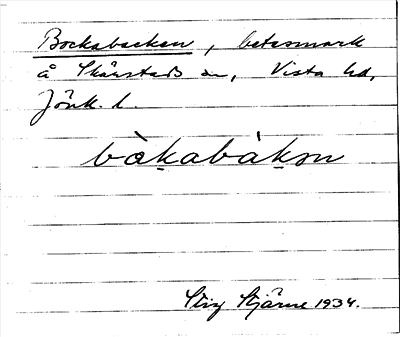 Bockabacken, betesmark
å Skärstads sn, Vista hd,
Jönk. l.
bòkabàkən
Stig Stjärne 1934.